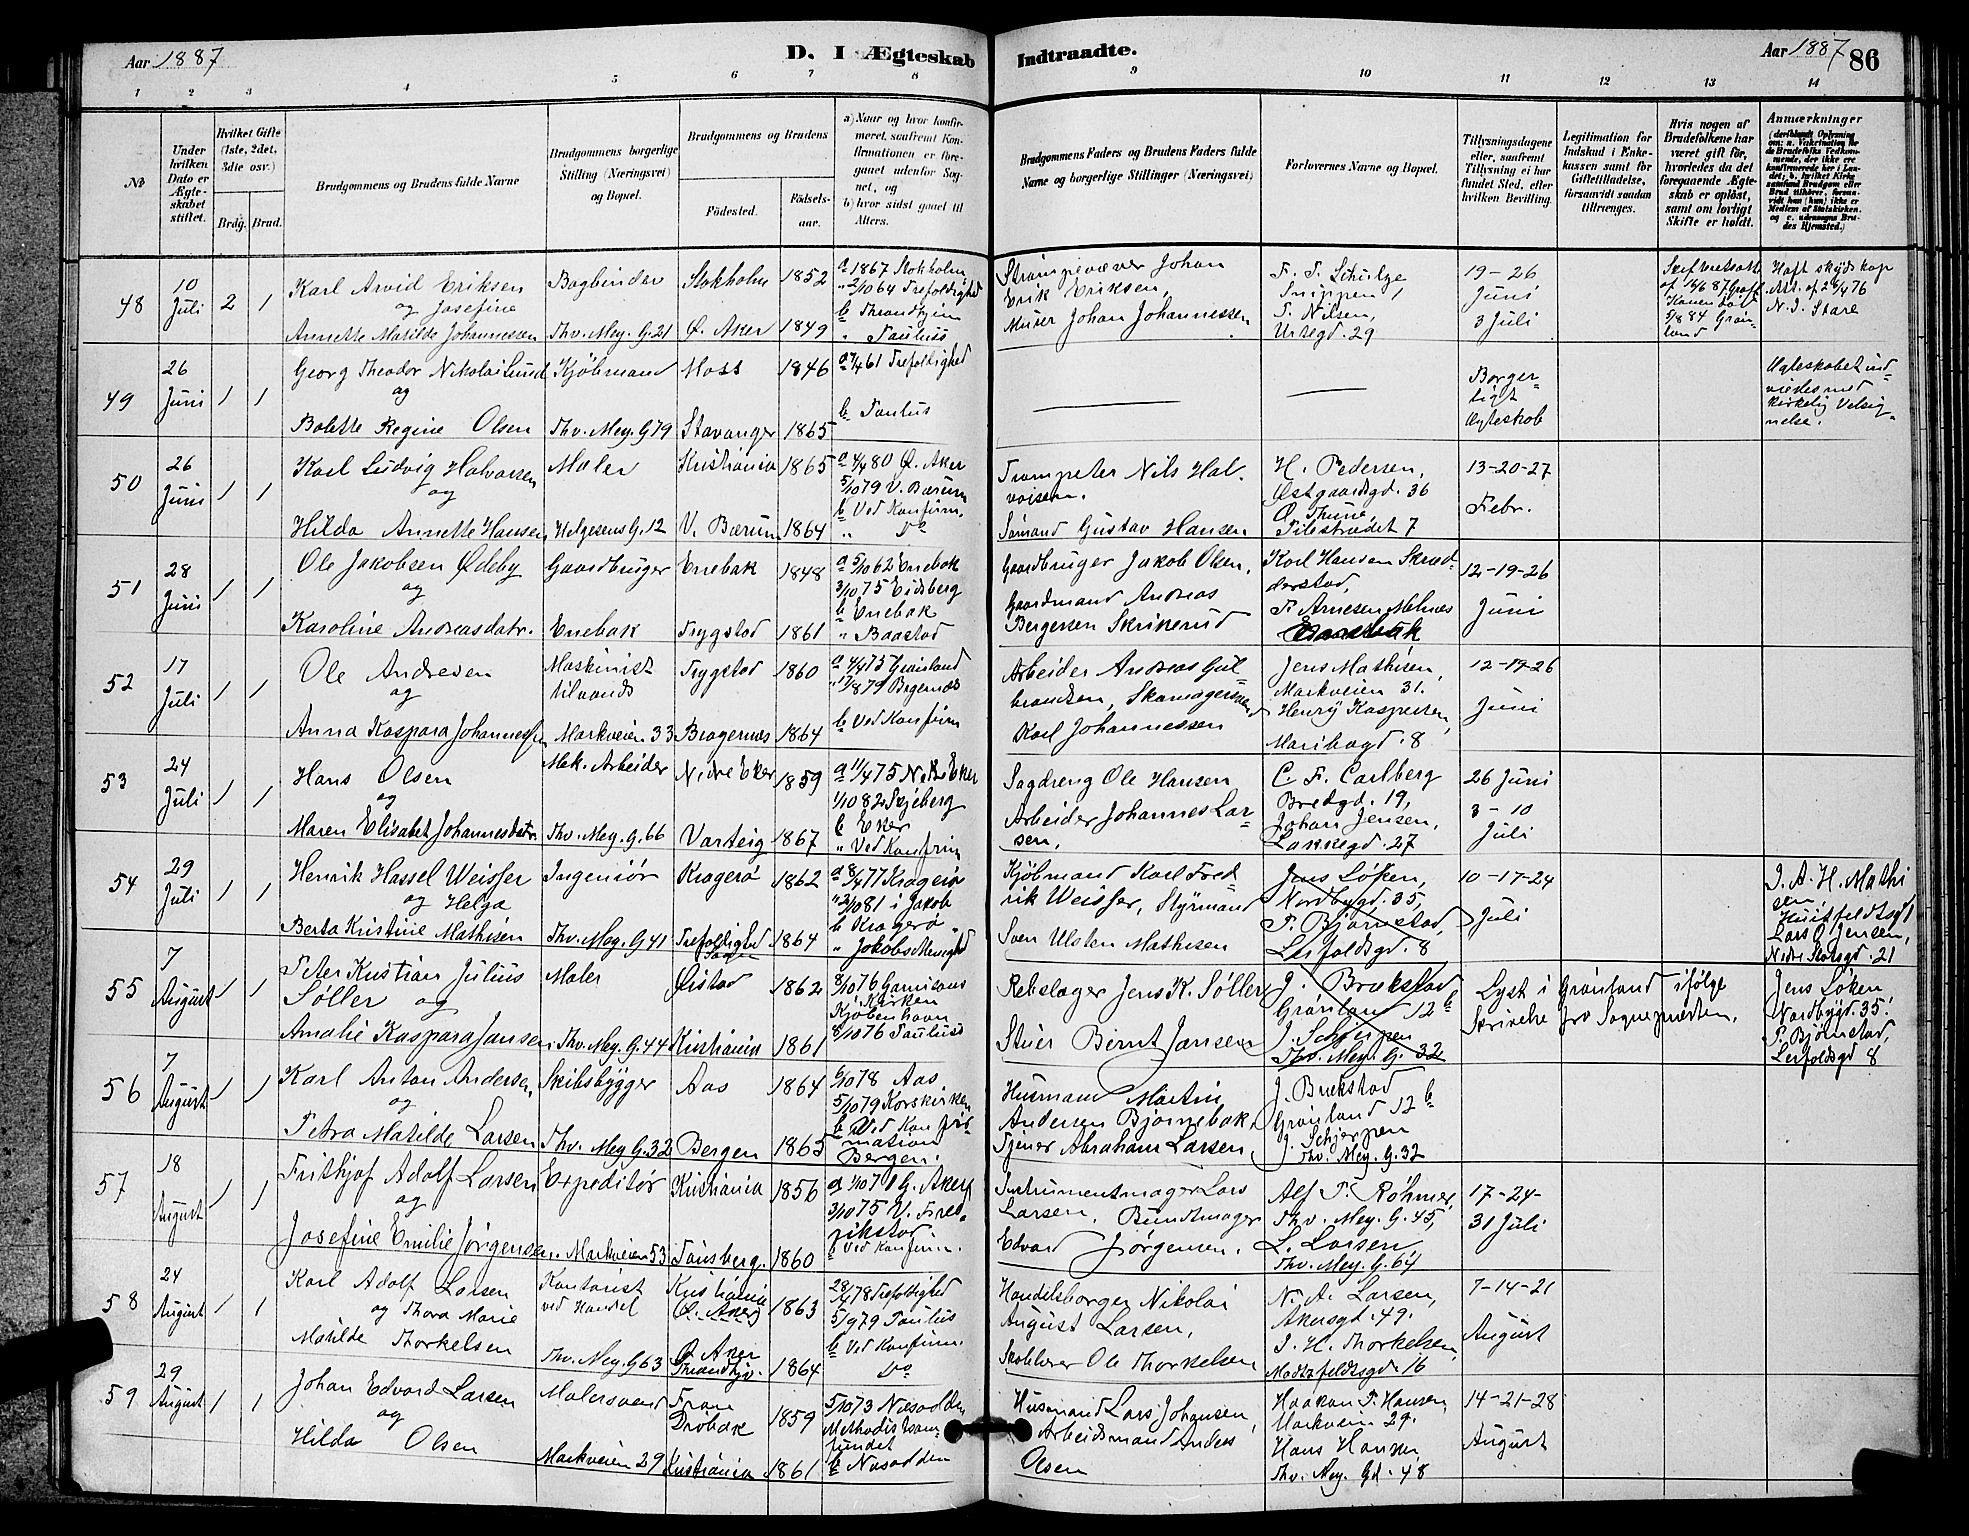 Aar 1887
D. I Ægteskab
Indtraadte.
Aar 1887
86
1 2 3 4 5 6 7 8 9 10 11 12 13 14
No
Under hvilken Dato er Ægteskabet stiftet.
Hvilket Gifte (1ste, 2det, 3die osv.)
Brdg. Brud.
Brudgommens og Brudens fulde Navne
Brudgommens borgerlige Stilling (Næringsvei) og Bopæl.
Brudgommens og Brudens
Födested.
Födselsaar.
a) Naar og hvor konfirmeret, saafremt Konfirmationen er foregaaet udenfor Sognet, og
b) hvor sidst gaaet til Alters.
Brudgommens Faders og Brudens Faders fulde Navne og borgerlige Stillinger (Næringsvei)
Forlovernes Navne og Bopæl.
Tillysningsdagene eller, saafremt Tillysning ei har fundet Sted, efter hvilken Bevilling.
Legitimation for Indskud i Enkekassen samt for Giftetilladelse, forsaavidt saadan tiltrænges.
Hvis nogen af Brudefolkene har været gift för, hvorledes da det foregaaende Ægteskab er oplöst, samt om lovligt Skifte er holdt.
Anmærkninger
48
10 Juli
2 1
Karl Arvid Eriksen
og Josefine
Annette Matilde Johannessen
Bogbinder
Thv. Mey. G. 21
Stokholm 1852
Ø. Aker 1849
a 1867 Stokholm
" 2/10 64 Trefoldighed
b Throndhjem
" Paulus
Strømpevæver Johan
Erik Eriksen,
Murer Johan Johannessen
F. T. Schulze
Snippen 1
T. Nilsen,
Urtegd. 29
19-26
Juni
3 Juli
N. J. Stare
49
26 Juni
1 1
Georg Theodor Nikolai Lund
og
Bolette Regine Olsen
Kjøbmand
Thv. Mey. G 79
Moss 1846
Stavanger 1865
61 Trefoldighed
b Paulus
Borgerligt
Ægteskab
Ægteskabet indviedes med
kirkelig Velsignelse.
50
26 Juni
1 1
Karl Ludvig Halvorsen
og
Hilda Annette Hansen
Maler
Helgesens G. 12
Kristiania 1865
V. Bærum 1864
a 4/4 80 Ø. Aker
5/10 79 V. Bærum
b Ved Konfirm.
" Do
Trompeter Nils Halvorsen.
Sømand Gustav Hansen
H. Pedersen,
Østgaardsgd. 36
O. Thune,
Pilestrædet 7
13-20-27
Febr.
51
28 Juni
1 1
Ole Jakobsen Ødeby
og
Karoline Andreasdatr.
Gaardbruger
Enebak
Enebak 1848
Trygstad 1861
a 5/10 62 Enebak
3/10 75 Eidsberg
b Enebak
" Baastad
Gaardbruger Jakob Olsen,
Gaardmand Andreas
Bergersen Skrikerud
Karl Hansen Skrædderstad,
F. Arnesen Melnæs
12-19-26
Juni
52
17 Juli
1 1
Ole Andresen
og
Anna Kaspara Johannessen
Maskinist
tilvands
Markveien 33
Trygstad 1860
Bragernæs 1864
a 4/4 75 Grønland
" 17/8 79 Bragernæs
b Ved Konfirm
Arbeider Andreas Gulbrandsen, Skomagersvend
Karl Johannessen
Jens Mathisen,
Markveien 31.
Henry Kaspersen,
Maribogd. 8
12-19-26
Juni
53
24 Juli
1 1
Hans Olsen
og
Maren Elisabet Johannesdatr.
Mek. Arbeider
Thv. Mey. G. 66
Nedre Eker 1859
Varteig 1867
a 11/4 75 N. Eker
1/10 82 Skjeberg
b Eker
" Ved Konfirm
Sagdreng Ole Hansen
Arbeider Johannes Larsen,
C. F. Carlberg
Bredgd. 19,
Johan Jensen,
Lakkegd. 27
26 Juni
3-10
Juli
54
29 Juli
1 1
Henrik Hassel Weisser
og Helga
Berta Kristine Mathisen
Ingeniør
Thv. Mey. G 41
Kragerø 1862
Trefoldighed Sogn 1864
a 8/4 77 Kragerø
" 2/10 81 i Jakob
b Kragerø
" Jakobs Menighed
Kjøbmand Karl Fredrik Weisser, Styrmand
Sven Ulsten Mathisen
Jens Løken,
Nordbygd. 35,
P. Bjørnstad,
Leirfaldsgd. 8
10-17-24
Juli
J. A. H. Mathisen,
Huitfeldtsgd 1
Lars O. Jensen,
Nedre Slotsgd. 21
55
7 August
1 1
Peter Kristian Julius
Søller og
Amalie Kaspara Jansen
Maler
Thv. Mey. G. 44
Ølstad 1862
Kristiania 1861
8/10 76 Garnisons
Kirken
Kjøbenhavn
8/10 76 Paulus
Rebslager Jens K. Søller
Stuer Bernt Jansen
J. Brækstad
Grønland 12 b
J. Schjerpen
Thv. Mey. G. 32
Lyst i Grønland ifølge
Skrivelse fra Sognepræsten.
Jens Løken
Nordbygd. 35.
P. Bjørnstad,
Leirfaldsgd 8
56
7 August
1 1
Karl Anton Andersen,
og
Petra Matilde Larsen
Skibsbygger
Thv. Mey G. 32
Aas 1864
Bergen 1865
6/10 78 Aas
5/10 79 Korskirken
b Ved Konfirmation
Bergen.
Husmand Martin
Andersen Bjørnebak,
Tjener Abraham Larsen,
J. Brækstad
Grønland 12 b
J. Schjerpen
Thv. Mey. G. 32
57
18 August
1 1
Frithjof Adolf Larsen
og
Josefine Emilie Jørgensen.
Expeditør
Markveien 53
Kristiania 1856
Tønsberg. 1860
a 1/10 71 G. Aker
3/10 75 V. Fredrikstad
b Ved Konfirm.
Instrumentmager Lars
Larsen, Bundtmager
Edvard Jørgensen.
Alf T. Røhmer,
Thv. Mey. G. 45,
L. Larsen
Thv. Mey. G. 64
17-24-
31 Juli
58
24 August
1 1
Karl Adolf Larsen
og Thora Marie
Matilde Thorkelsen
Kontorist
ved Handel
Thv. Mey. G 63
Kristiania
(Ø. Aker) 1863
Ø. Aker
Throndhjv. 1864
78 Trefoldighed
5/9 79 Paulus
b Ved Konfirm.
Do
Handelsborger Nikolai
August Larsen,
Skoblever Ole Thorkelsen
N. A. Larsen,
Akersgd. 49.
J. H. Thorkelsen,
Motzfeldtsgd. 16
7-14-21
August
59
29 August
1 1
Johan Edvard Larsen
og
Hilda Olsen
Malersvend
Markveien 29
Fron
Drøbak 1859
Kristiania 1861
5/10 73 Næsodden
Methodistsamfundet
b Næsodden
Husmand Lars Johansen,
Arbeidsmand Anders
Olsen
Haakon T. Hansen,
Markveien 29.
Hans Hansen,
Thv. Mey. Gd. 48
14-21-28
August